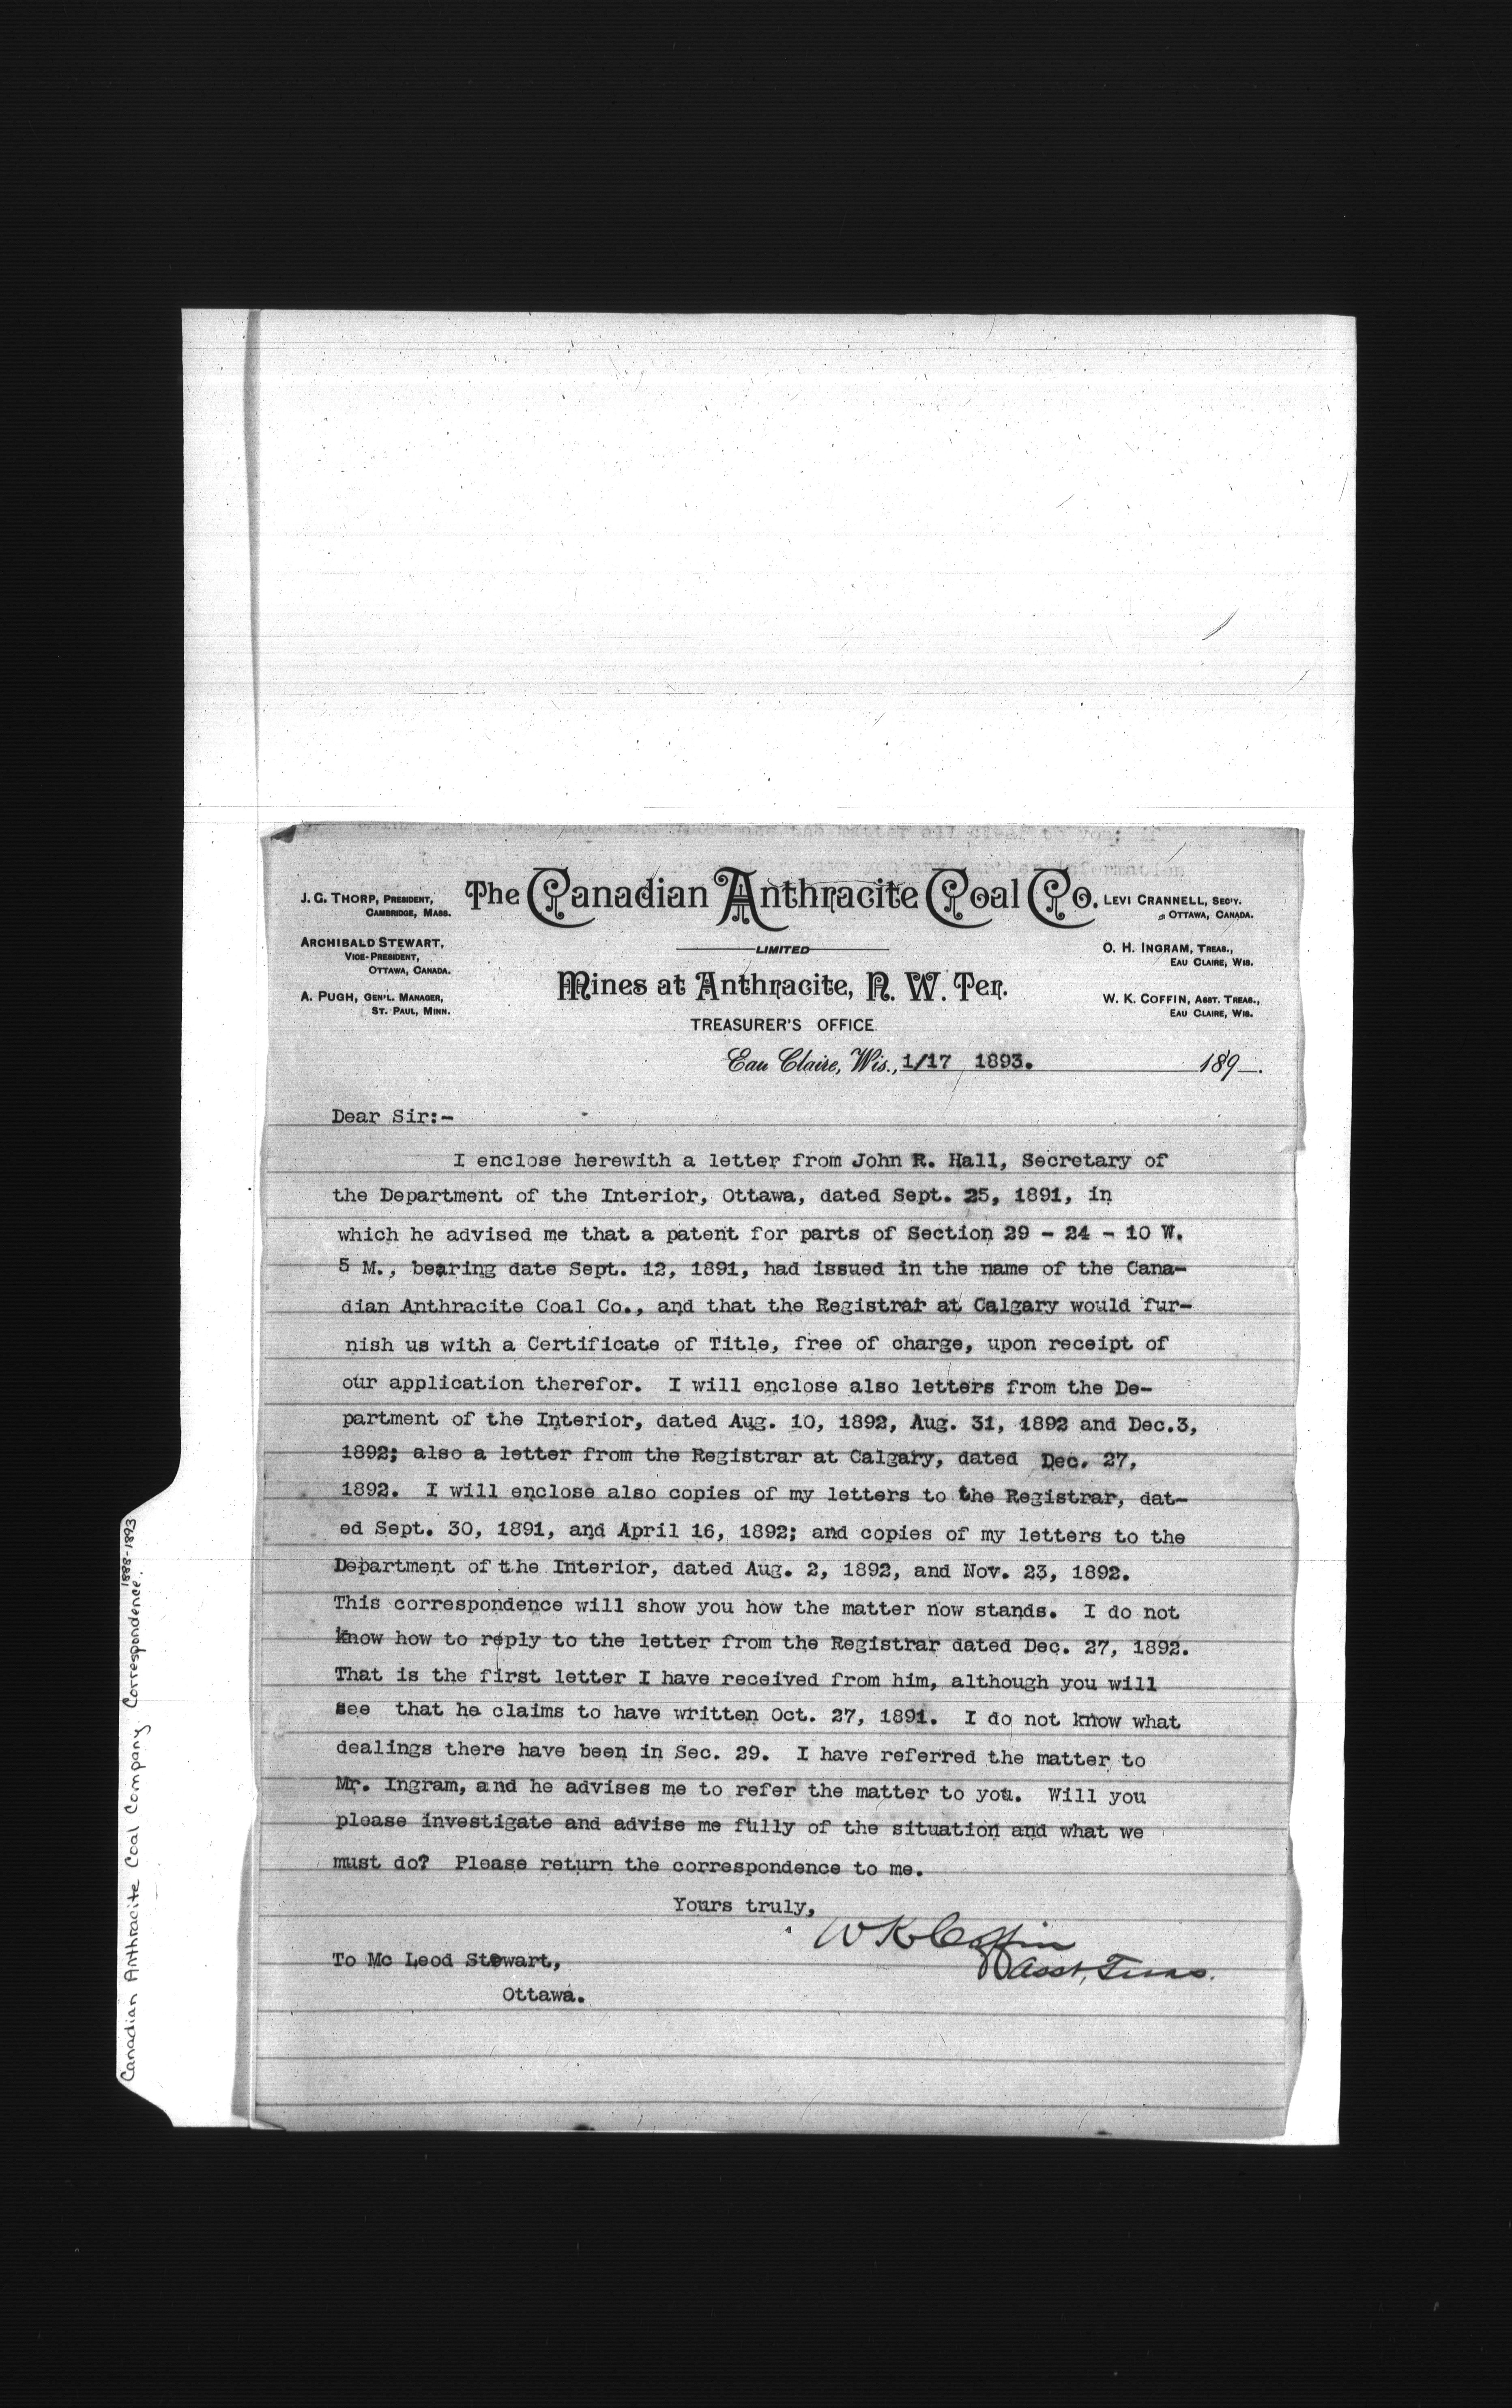 the matter all clear to you; if
any further information
The Canadian Anthracite Coal Co.
LIMITED
Mines at Anthracite, N. W. Ter.
TREASURER'S OFFICE
J. G. THORP, PRESIDENT,
CAMBRIDGE, MASS.
ARCHIBALD STEWART,
VICE-PRESIDENT,
OTTAWA, CANADA.
A. PUGH, GEN'L. MANAGER,
ST. PAUL, MINN.
LEVI CRANNELL, SEC'Y.
OTTAWA, CANADA.
O. H. INGRAM, TREAS.,
EAU CLAIRE, WIS.
W. K. COFFIN, ASST. TREAS.,
EAU CLAIRE, WIS.
Eau Claire, Wis., 1/17 1893. 189_.
Dear Sir:-
I enclose herewith a letter from John R. Hall, Secretary of
the Department of the Interior, Ottawa, dated Sept. 25, 1891, in
which he advised me that a patent for parts of Section 29 - 24 - 10 W.
5 M., bearing date Sept. 12, 1891, had issued in the name of the Cana-
dian Anthracite Coal Co., and that the Registrar at Calgary would fur-
nish us with a Certificate of Title, free of charge, upon receipt of
our application therefor. I will enclose also letters from the De-
partment of the Interior, dated Aug. 10, 1892, Aug. 31, 1892 and Dec.3,
1892; also a letter from the Registrar at Calgary, dated Dec. 27,
1892. I will enclose also copies of my letters to the Registrar, dat-
ed Sept. 30, 1891, and April 16, 1892; and copies of my letters to the
Department of the Interior, dated Aug. 2, 1892, and Nov. 23, 1892.
This correspondence will show you how the matter now stands. I do not
know how to reply to the letter from the Registrar dated Dec. 27, 1892.
That is the first letter I have received from him, although you will
see that he claims to have written Oct. 27, 1891. I do not know what
dealings there have been in Sec. 29. I have referred the matter to
Mr. Ingram, and he advises me to refer the matter to you. Will you
please investigate and advise me fully of the situation and what we
must do? Please return the correspondence to me.
Yours truly,
W K Coffin
Asst. Treas.
To Mc Leod Stewart,
Ottawa.
Canadian Anthracite Coal Company. Correspondence.
1888-1893